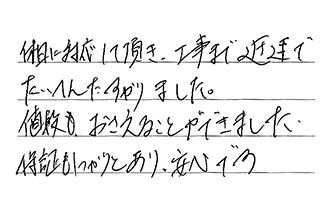 休日に対応して頂き、工事まで迅速で
たいへんたすかりました。
値段も、おさえることができました。
保証もしっかりとあり、安心です